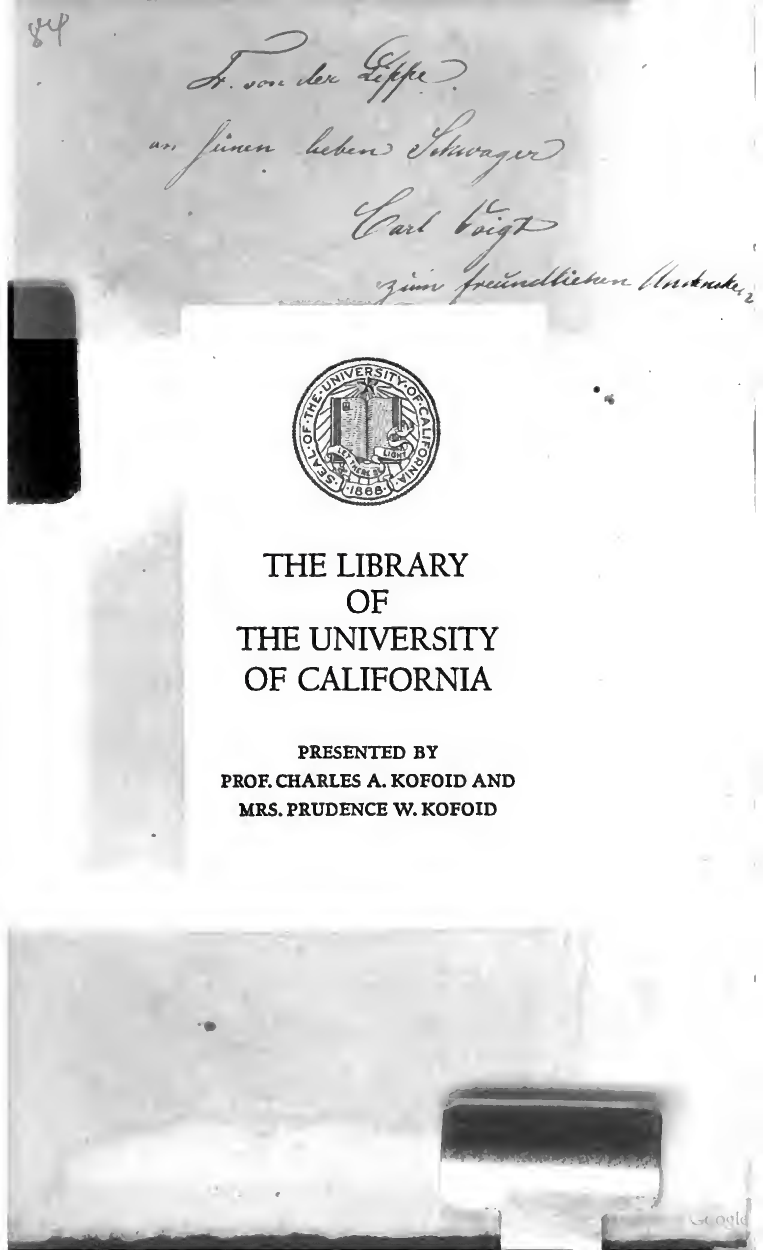 84
Fr. von der Lippe
an seinen lieben Schwager
Carl Voigt
zum freundlichen Andenken
SEAL·OF·THE·UNIVERSITY·OF·CALIFORNIA·
LET THERE BE LIGHT
·1868·
THE LIBRARY
OF
THE UNIVERSITY
OF CALIFORNIA
PRESENTED BY
PROF. CHARLES A. KOFOID AND
MRS. PRUDENCE W. KOFOID
Google